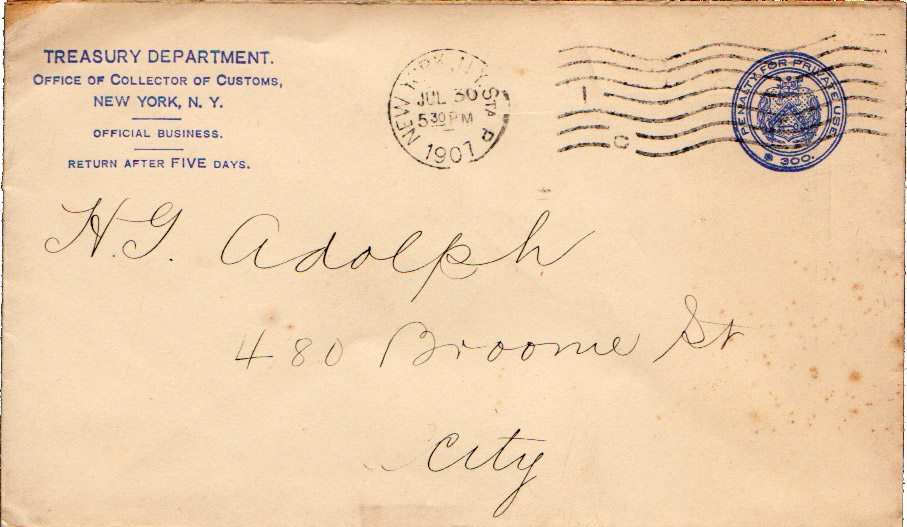 TREASURY DEPARTMENT.
OFFICE OF COLLECTOR OF CUSTOMS,
NEW YORK, N. Y.
OFFICIAL BUSINESS.
RETURN AFTER FIVE DAYS.
NEW YORK, N.Y. STA P
JUL 30
5 30 PM
1907
1
C
PENALTY FOR PRIVATE USE
$ 300.
H. G. Adolph
480 Broome St
City